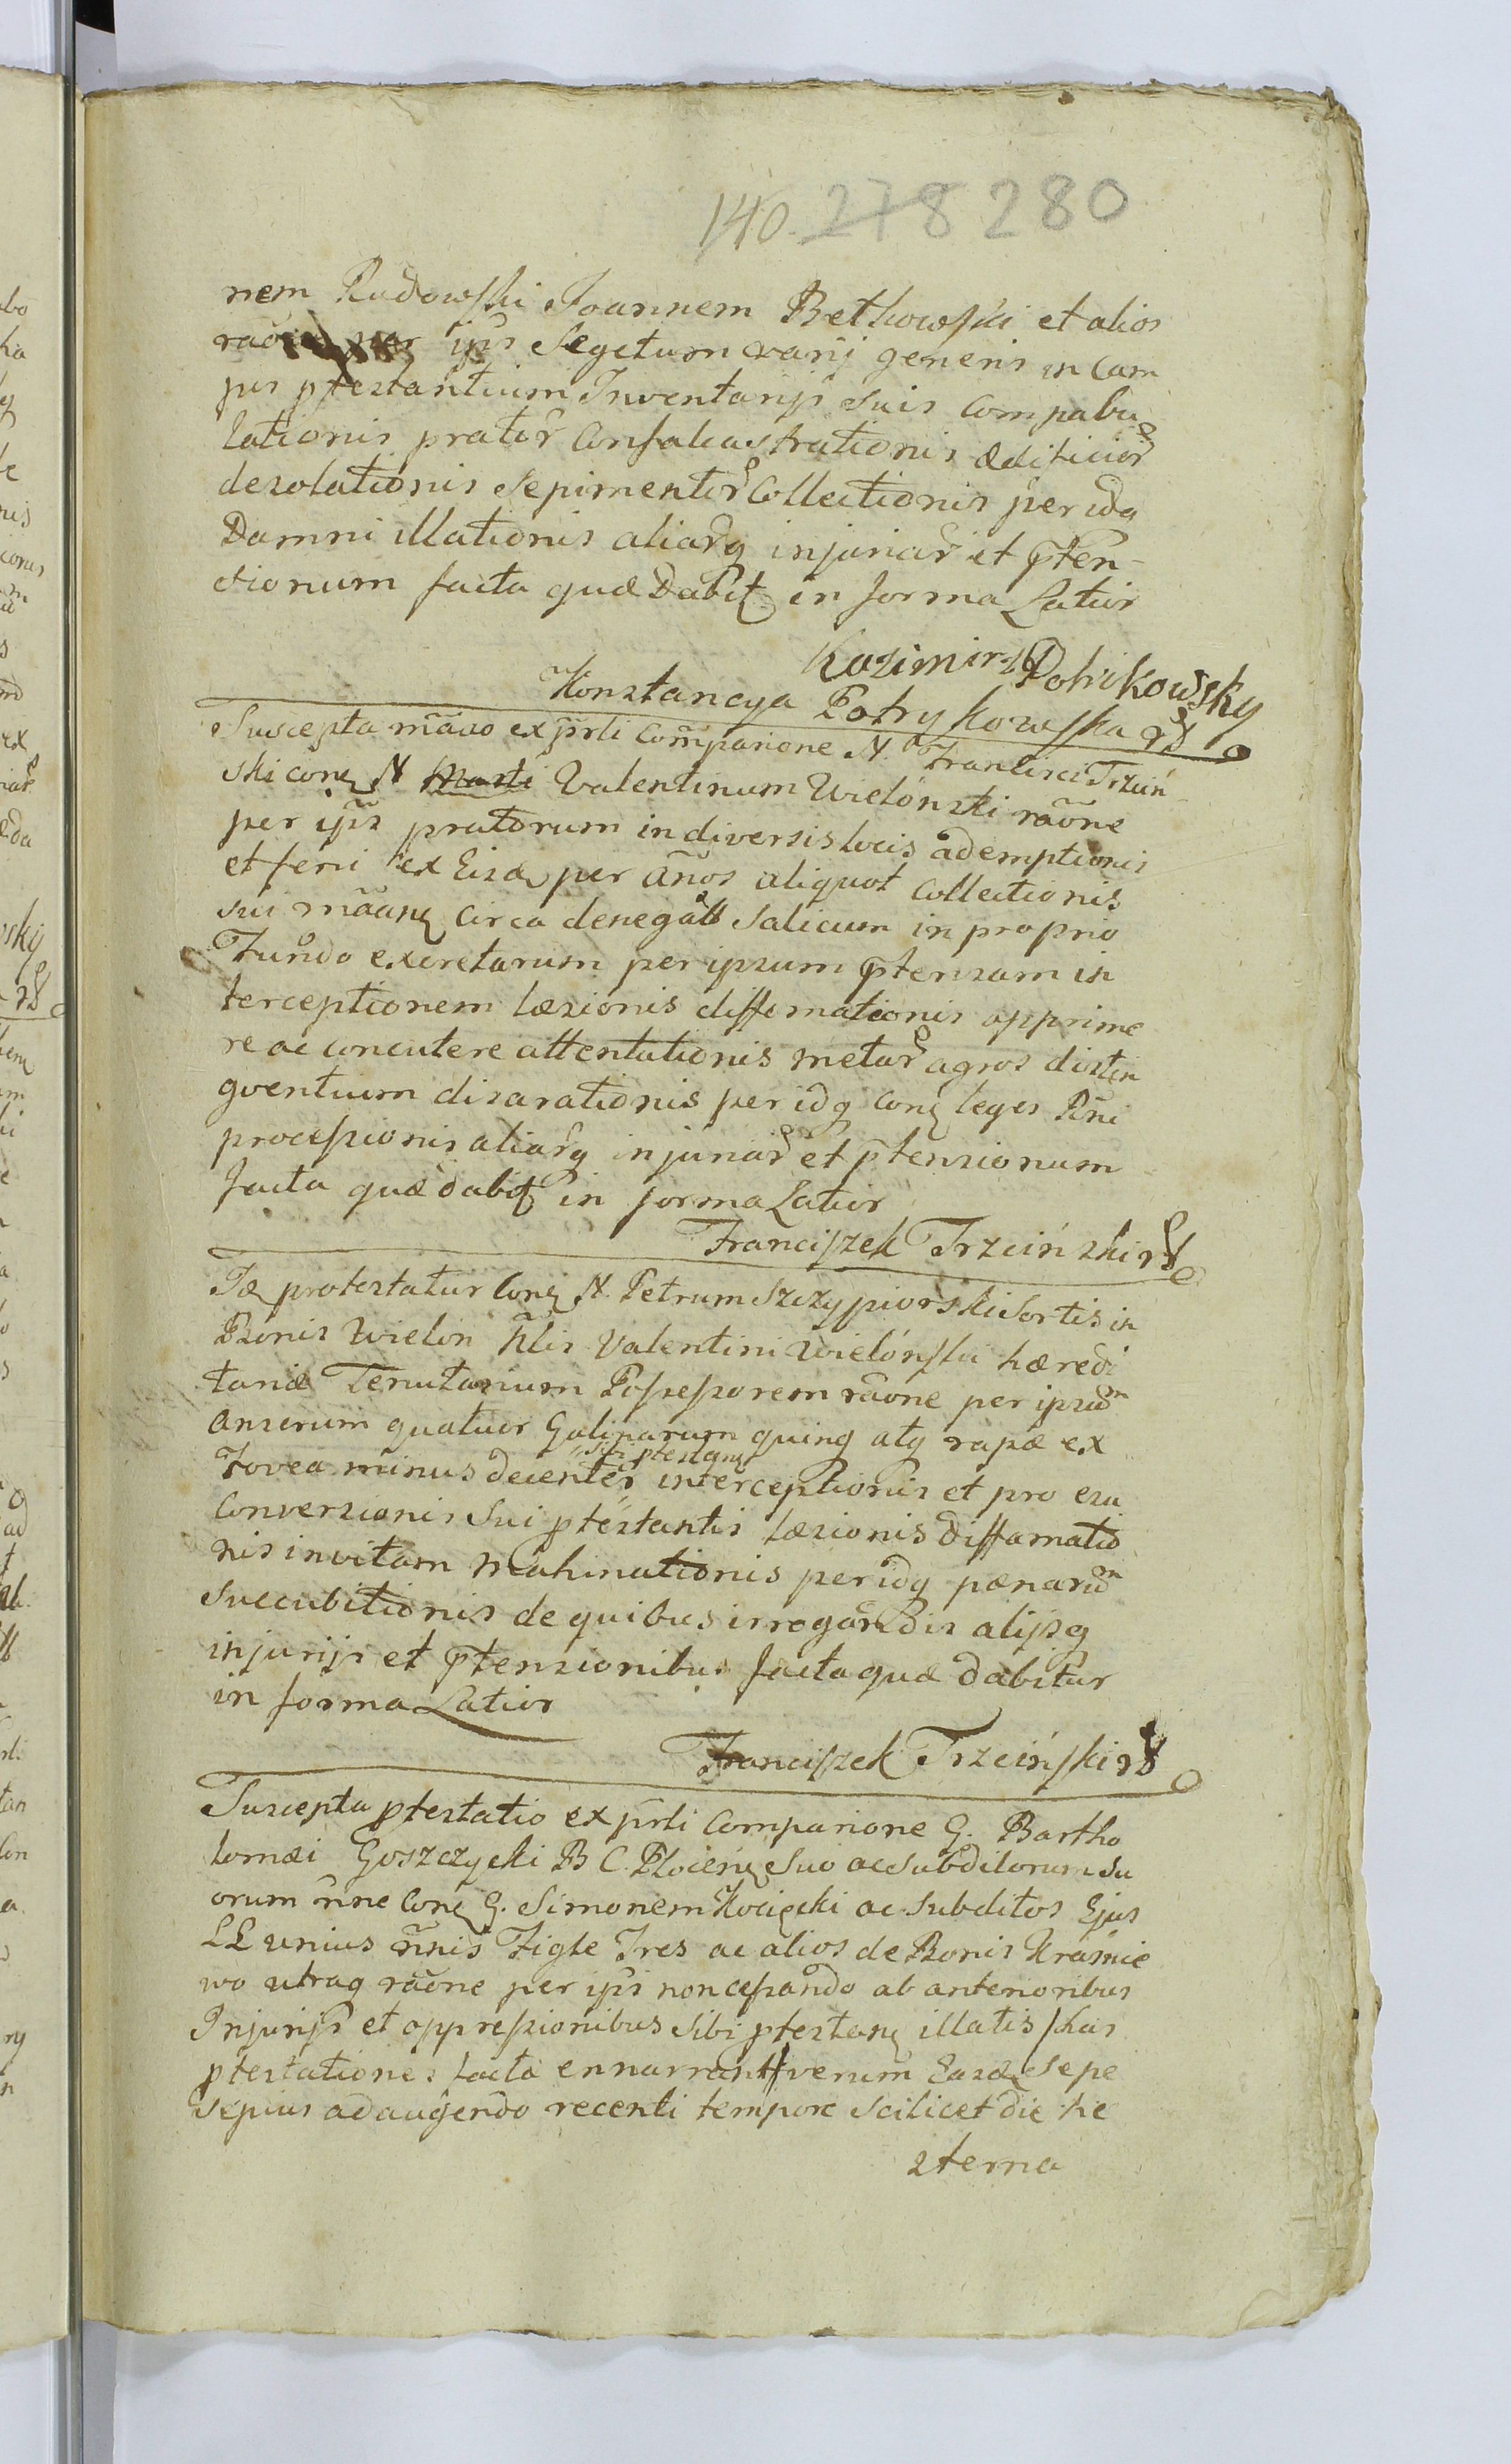 140. 278 280
nem Rudowski Joannem Betkowski et alios
per ip̃s segetum varij generis in cam
pis ꝓtestantium Inventarijs suis compabu
lationis prator̃ Consalcastrationis ædificior̃
desolationis sepimentor̃ Collectionis per idq
Damni illationis aliarq injuriar̃ et p̃ten-
sionum facta quæ Dabit in forma Latior
Kazimirz Potrikowsky
Konstancya Potrykowska
Suscepta mãāo ex p̃rli Comparione N. Francisci Trzciń
ski con N Valentinum Wielónski rãone
per ip̃s pratorum in diversis locis ademptionis
et feni ex Eisd per Años aliquot Collectionis
sui mãan circa denegatt salicum in proprio
Fundo excretarum per ipsum p̃tensam in
terceptionem læsionis diffamationis opprime
re ac concutere attentationis metar̃ agros distin
gventium disarationis per idq con leges Rñi
processionis aliarq injuriar̃ et p̃tensionum
facta quæ dabit in forma Latior
Franciszek Trzciński
Id protestatur Con N. Petrum Szczypiorski Sortis in
Bonis Wielon Ñlis Valentini Wielónski hæredi
tariæ Tenutarium Possessorem rãone per ipsum
Anserum quatuor Galinarum quinq atq rapæ ex
sibi ꝓtestan
Fovea minus decenter interceptionis et pro esu
Conversionis Sui ꝓtestantis læsionis Diffamatio
nis in vitam Mahinationis per idq pænarum
succubitionis de quibus irrogandis alijsq
injurijs et p̃tensionibus facta quæ dabitur
in forma Latior
Franciszek Trzciński
Suscepta ꝓtestatio ex p̃rli Comparione G. Bartho
lomæi Goszczycki B C. Plocen Suo ac Subditorum su
orum ñne Con G. Simonem Kocięcki ac Subditos Ejus
LL unius ñnis Figle Tres ac alios de Bonis Kraśnie
wo utraq rãone per ip̃s non cessando ab anterioribus
Injurijs et oppressionibus Sibi ꝓtestan illatis has
ꝓtestationes facta ennarrant verum Easd sepe
sepius adaugendo recenti tempore Scilicet die he
sterna